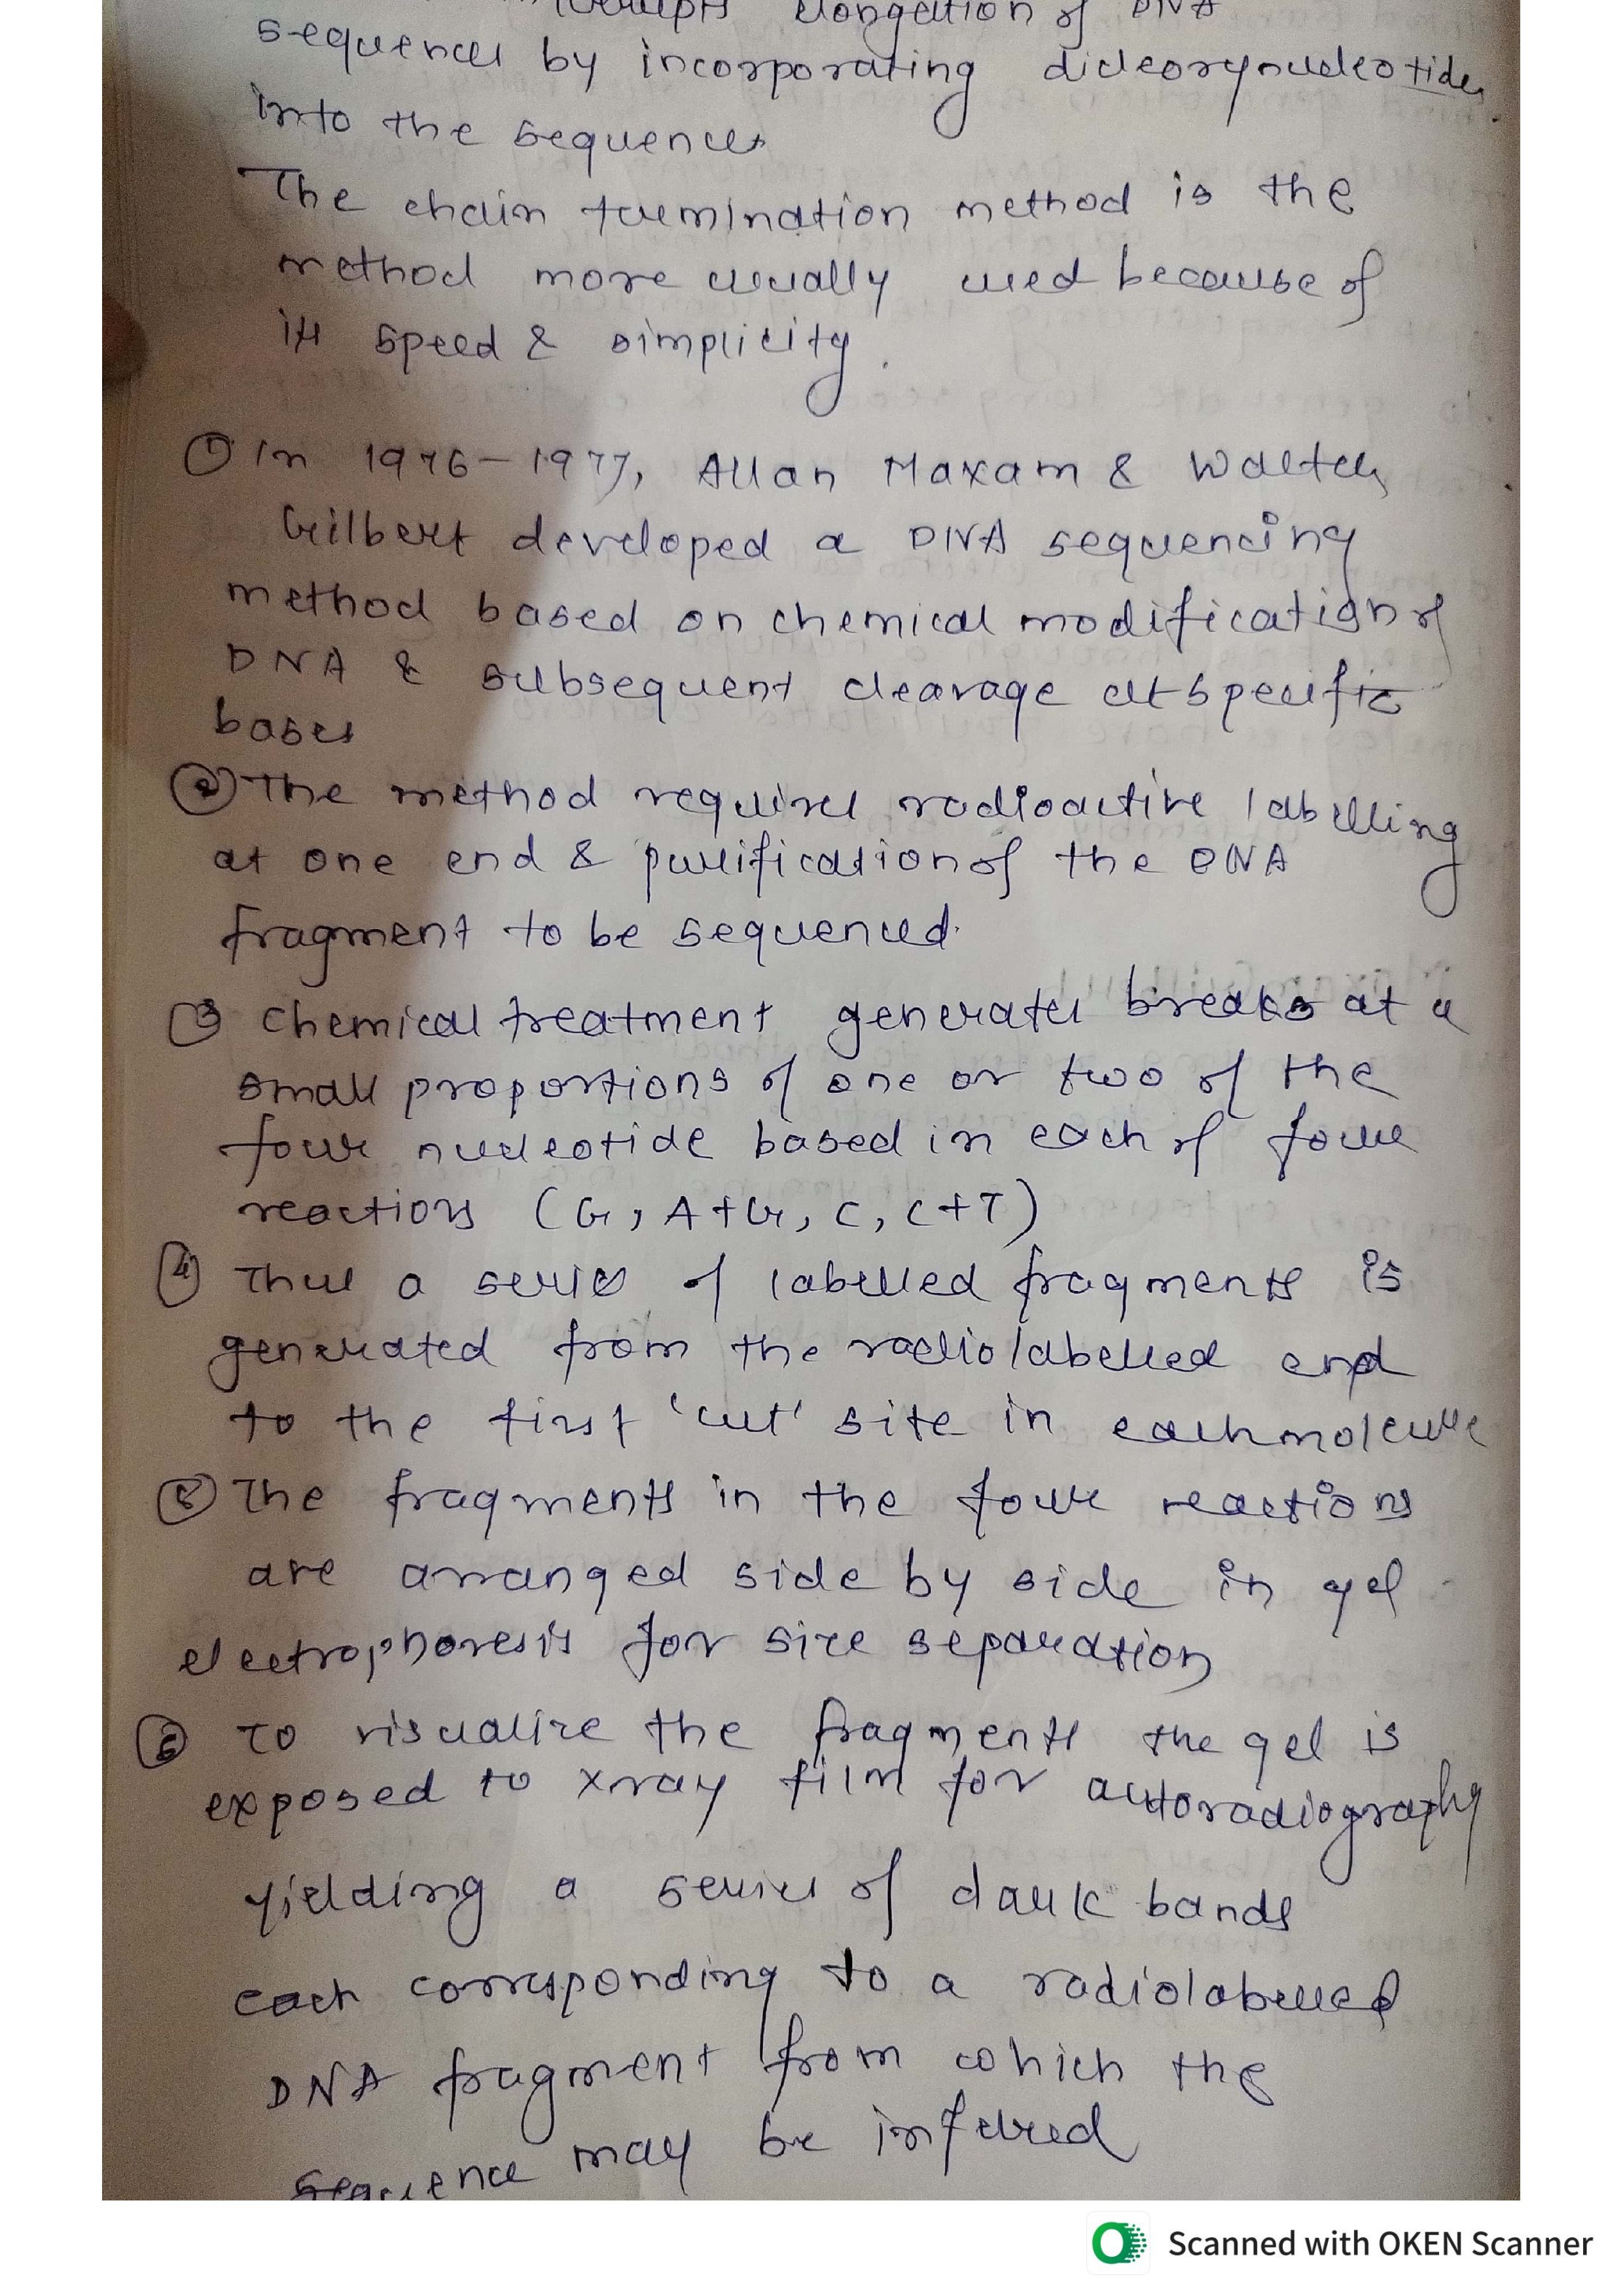 elongation of DNA
sequences by incorporating dideoxynucleotides
into the sequences
The chain termination method is the
method more usually used because of
its speed & simplicity.
① In 1976-1977, Allan Maxam & Walter
Gilbert developed a DNA sequencing
method based on chemical modification of
DNA & subsequent cleavage at specific
bases
② The method requires radioactive labelling
at one end & purification of the DNA
fragment to be sequenced.
③ chemical treatment generates breaks at a
small proportions of one or two of the
four nucleotide based in each of four
reactions (G, A+G, C, C+T)
④ Thus a series of labelled fragments is
generated from the radiolabelled end
to the first 'cut' site in each molecule
⑤ The fragments in the four reactions
are arranged side by side in gel
electrophoresis for size separation
⑥ To visualize the fragments the gel is
exposed to xray film for autoradiography
yielding a series of dark bands
each corresponding to a radiolabelled
DNA fragment from which the
sequence may be infered
Scanned with OKEN Scanner